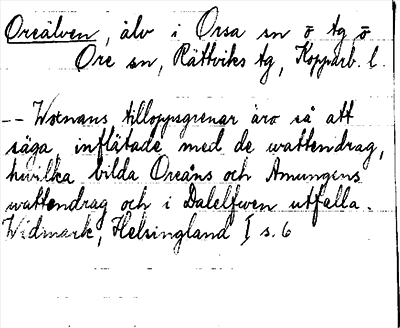 Oreälven, älv i Orsa sn o tg o
Ore sn, Rättviks tg, Kopparb. l.
-- Woxnans tilloppsgrenar äro så att
säga inflätade med de wattendrag,
hwilka bilda Oreåns och Amungens
wattendrag och i Dalelfwen utfalla.
Widmark, Helsingland I s. 6